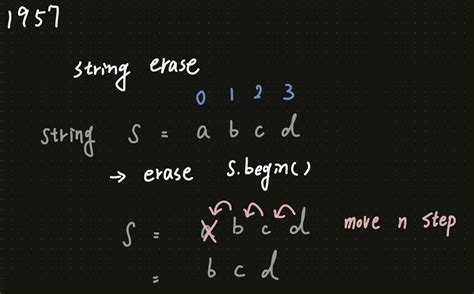 1957
string erase
0 1 2 3
string S = a b c d
→ erase S.begin()
S = a b c d move n step
= b c d